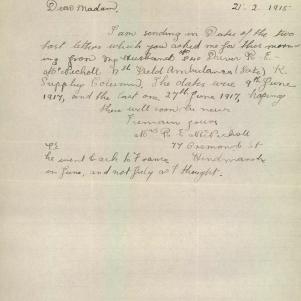 Dear Madam, 21. 2. 1918
I am sending in Dates of the two
last letters which you asked me for this morn-
ing from my Husband Driver R. E.
McNicholl 7th Field Ambulance (late) R.
Supply Column). The dates were 9th June
1917, and the last one 27th June 1917, hoping
there will soon be news
I remain yours
Mrs R. E. McNicholl
77 Ormond St
Hindmarsh
he went back to France
in June, and not July as I thought.